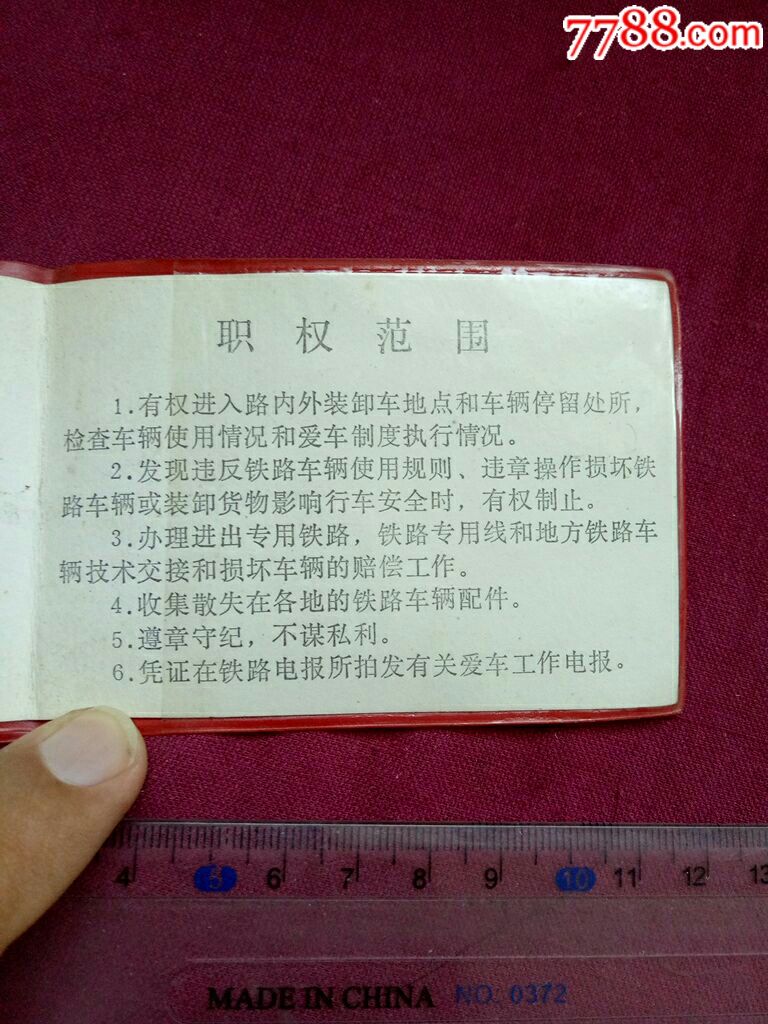 7788.com
职权范围
1.有权进入路内外装卸车地点和车辆停留处所，
检查车辆使用情况和爱车制度执行情况。
2.发现违反铁路车辆使用规则、违章操作损坏铁
路车辆或装卸货物影响行车安全时，有权制止。
3.办理进出专用铁路，铁路专用线和地方铁路车
辆技术交接和损坏车辆的赔偿工作。
4.收集散失在各地的铁路车辆配件。
5.遵章守纪，不谋私利。
6.凭证在铁路电报所拍发有关爱车工作电报。
4 5 6 7 8 9 10 11 12 13
MADE IN CHINA NO. 0372